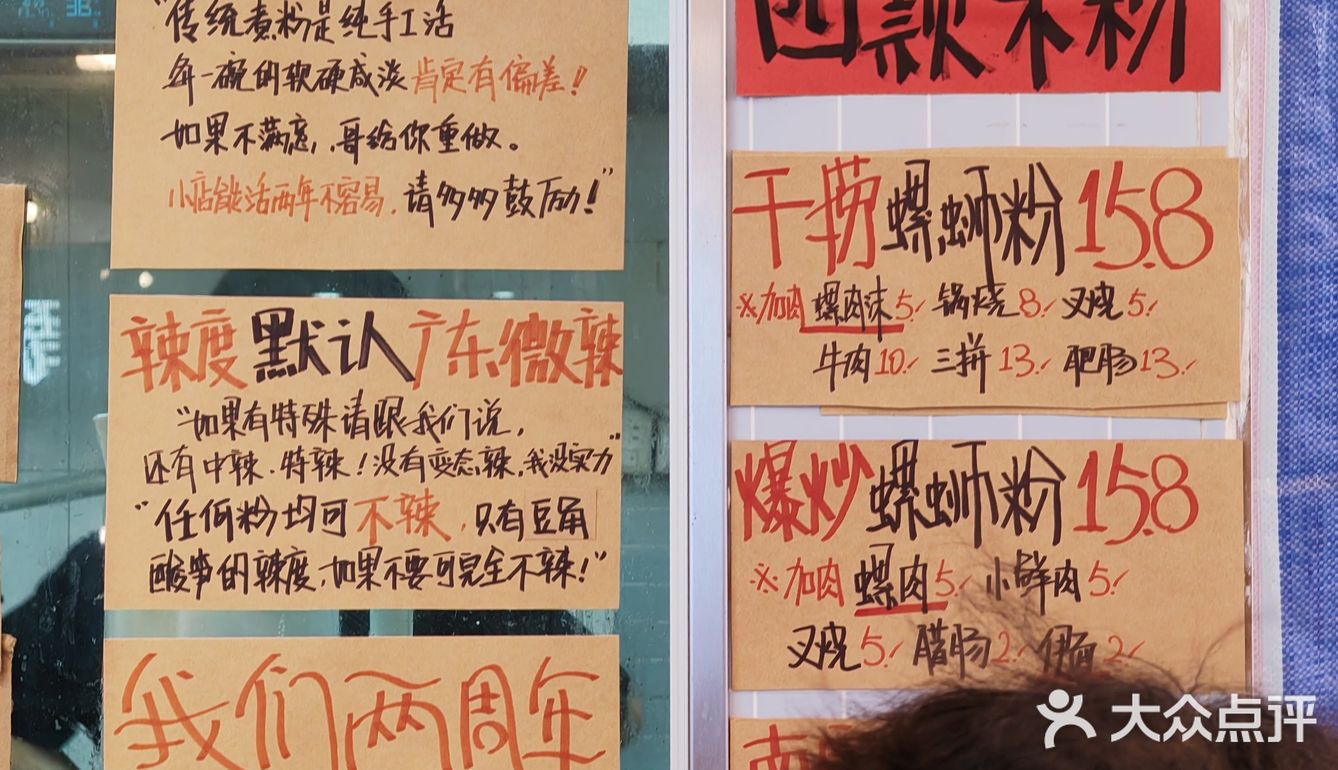 "传统煮粉是纯手工活
每一碗的软硬咸淡肯定有偏差!
如果不满意,哥给你重做。
小店能活两年不容易,请多多鼓励!"
辣度默认广东微辣
"如果有特殊请跟我们说,
还有中辣、特辣!没有变态辣,我没实力"
"任何粉均可不辣,只有豆角
酸笋的辣度,如果不要可完全不辣!"
我们两周年
四款米粉
干捞螺蛳粉15.8
※加肉 螺肉沫5/ 锅烧8/ 叉烧5/
牛肉10/ 三拼13/ 肥肠13/
爆炒螺蛳粉15.8
※加肉 螺肉5/ 小鲜肉5/
叉烧5/ 腊肠2/ 2/
大众点评